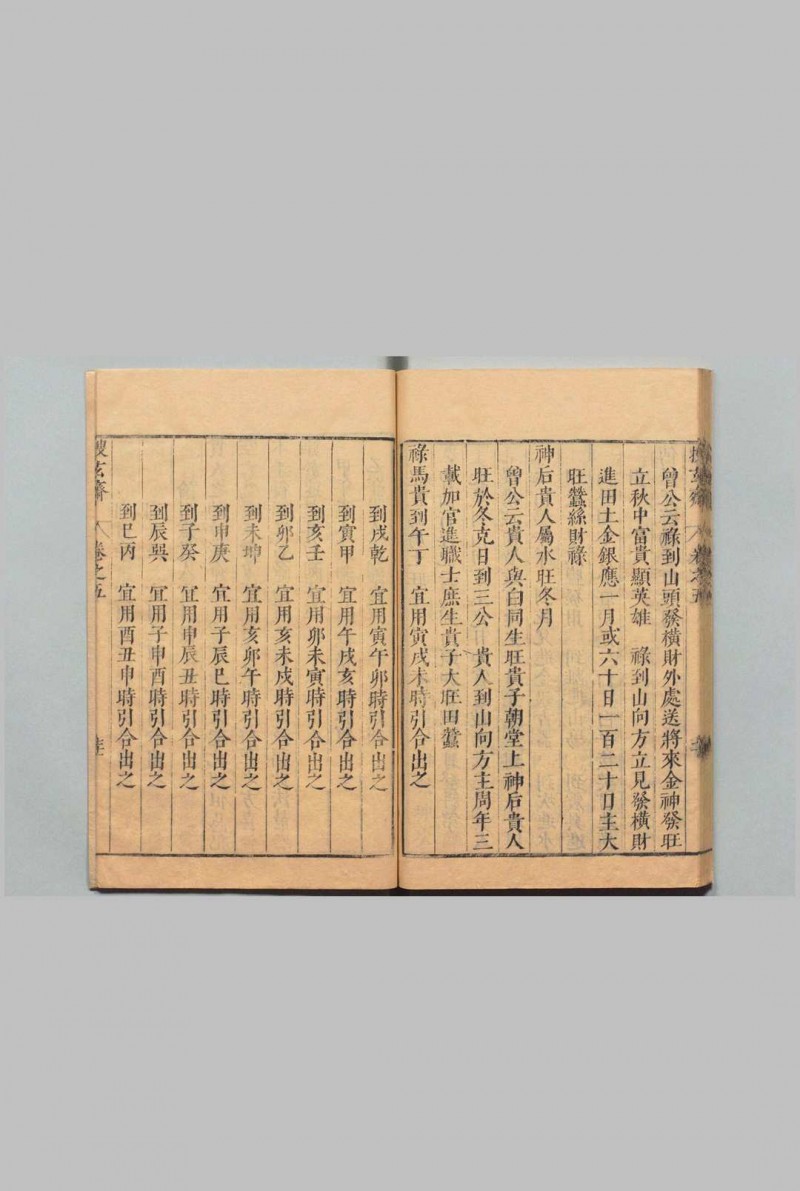 曾公云祿到山頭發橫財外處送將來金神發旺
立秋中富貴顯英雄　祿到山向方立見發橫財
進田土金銀應一月或六十日一百二十日主大
旺蠶絲財祿
神后貴人屬水旺冬月
曾公云貴人與白同生旺貴子朝堂上神后貴人
旺於冬克日到三公　貴人到山向方主周年三
載加官進職士庶生貴子大旺田蠶
祿馬貴到午丁　宜用寅戌未時引合出之
到戌乾　宜用寅午卯時引合出之
到寅甲　宜用午戌亥時引合出之
到亥壬　宜用卯未寅時引合出之
到卯乙　宜用亥未戌時引合出之
到未坤　宜用亥卯午時引合出之
到申庚　宜用子辰巳時引合出之
到子癸　宜用申辰丑時引合出之
到辰巽　宜用子申酉時引合出之
到巳丙　宜用酉丑申時引合出之
玄齋　卷之五